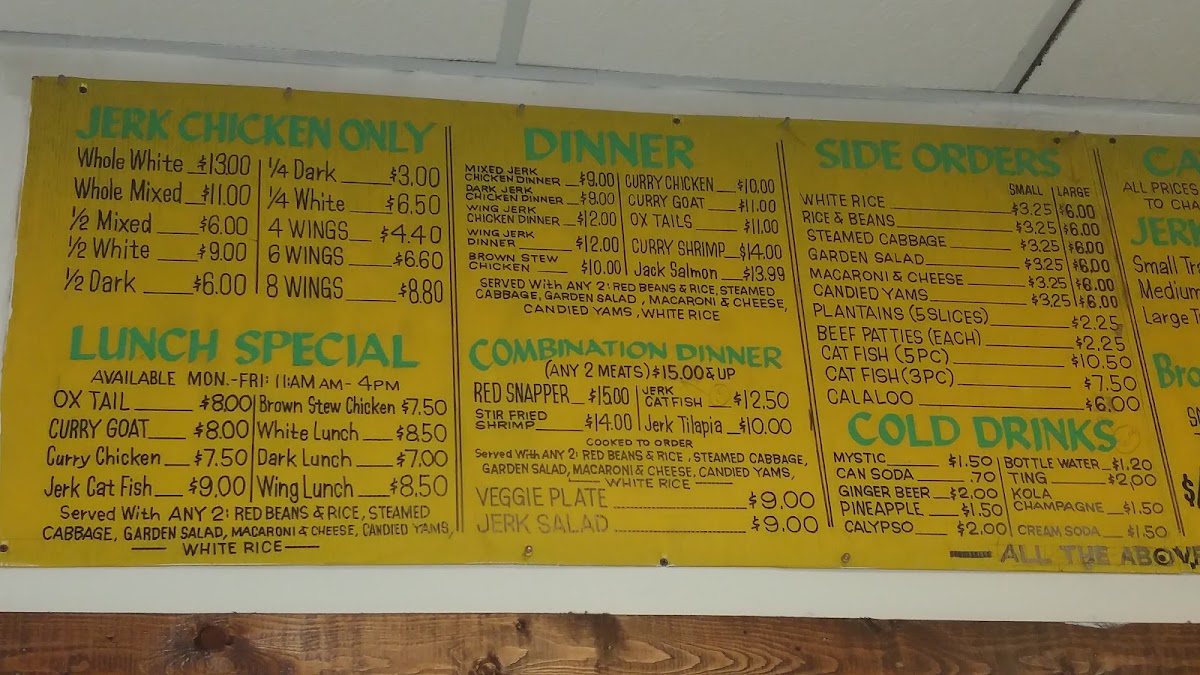 JERK CHICKEN ONLY
Whole White $13.00
Whole Mixed $11.00
1/2 Mixed $6.00
1/2 White $9.00
1/2 Dark $6.00
1/4 Dark $3.00
1/4 White $6.50
4 WINGS $4.40
6 WINGS $6.60
8 WINGS $8.80
LUNCH SPECIAL
AVAILABLE MON.-FRI: 11:AM AM- 4PM
OX TAIL $8.00
CURRY GOAT $8.00
Curry Chicken $7.50
Jerk Cat Fish $9.00
Brown Stew Chicken $7.50
White Lunch $8.50
Dark Lunch $7.00
Wing Lunch $8.50
Served With ANY 2: RED BEANS & RICE, STEAMED
CABBAGE, GARDEN SALAD, MACARONI & CHEESE, CANDIED YAMS,
WHITE RICE
DINNER
MIXED JERK
CHICKEN DINNER $9.00
DARK JERK
CHICKEN DINNER $9.00
WING JERK
CHICKEN DINNER $12.00
WING JERK
DINNER $12.00
BROWN STEW
CHICKEN $10.00
CURRY CHICKEN $10.00
CURRY GOAT $11.00
OX TAILS $11.00
CURRY SHRIMP $14.00
Jack Salmon $13.99
SERVED With ANY 2: RED BEANS & RICE, STEAMED
CABBAGE, GARDEN SALAD, MACARONI & CHEESE,
CANDIED YAMS, WHITE RICE
COMBINATION DINNER
(ANY 2 MEATS) $15.00 & UP
RED SNAPPER $15.00
STIR FRIED
SHRIMP $14.00
JERK
CATFISH $12.50
Jerk Tilapia $10.00
COOKED TO ORDER
Served With ANY 2: RED BEANS & RICE, STEAMED CABBAGE,
GARDEN SALAD, MACARONI & CHEESE, CANDIED YAMS,
WHITE RICE
VEGGIE PLATE $9.00
JERK SALAD $9.00
SIDE ORDERS
SMALL LARGE
WHITE RICE $3.25 $6.00
RICE & BEANS $3.25 $6.00
STEAMED CABBAGE $3.25 $6.00
GARDEN SALAD $3.25 $6.00
MACARONI & CHEESE $3.25 $6.00
CANDIED YAMS $3.25 $6.00
PLANTAINS (5 SLICES) $2.25
BEEF PATTIES (EACH) $2.25
CAT FISH (5PC) $10.50
CAT FISH (3PC) $7.50
CALALOO $6.00
COLD DRINKS
MYSTIC $1.50
CAN SODA .70
GINGER BEER $2.00
PINEAPPLE $1.50
CALYPSO $2.00
BOTTLE WATER $1.20
TING $2.00
KOLA
CHAMPAGNE $1.50
CREAM SODA $1.50
ALL THE ABOV
CA
ALL PRICES
TO CHA
JERK
Small Tra
Medium
Large T
Bro